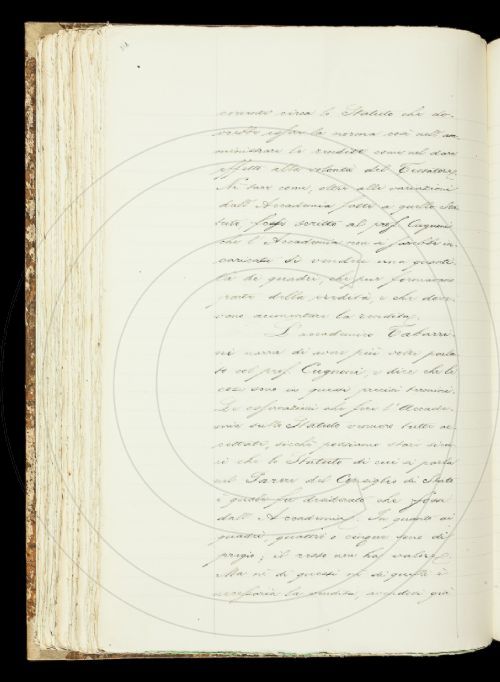 circa lo Statuto che do-
la norma così nell' am-
ministrare le rendite come nel dare
effetto alla volontà del Testatore.
come, oltre alle variazioni
dall' Accademia fatte a quello Sta-
tuto, scritto al prof. Cugnoni
che l' Accademia non
di vendere una
de' quadri, che pur formavano
parte della eredità, e che
la rendita.
L'accademico Tabarri-
ni narra di aver più volte parla-
to col prof. Cugnoni, e dice che le
cose sono in questi precisi termini.
Le osservazioni che fece l' Accade-
mia sullo Statuto vennero tutte ac-
cettate, sicché possiamo stare sicu-
ri che lo Statuto di cui si parla
nel Parere del Consiglio di Stato
è quello desiderato che
dall' Accademia. In quanto ai
quadri, quattro o cinque sono di
pregio; il resto non ha valore.
Ma nè di questi nè di quelli è
necessaria la vendita, già